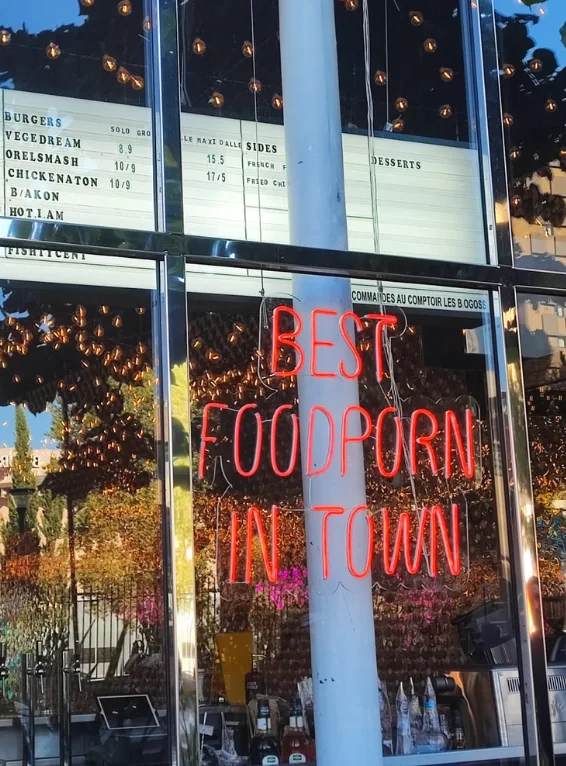 BURGERS
SOLO
VEGEDREAM 8,9
ORELSMASH 10/9
CHICKENATON 10/9
B/AKON
HOT.I.AM
FISHTYCENT
MAXI DALLE
15.5
17/5
SIDES
FRENCH
FRIED
DESSERTS
COMMANDES AU COMPTOIR LES B.OGOSS
BEST
FOODPORN
IN TOWN